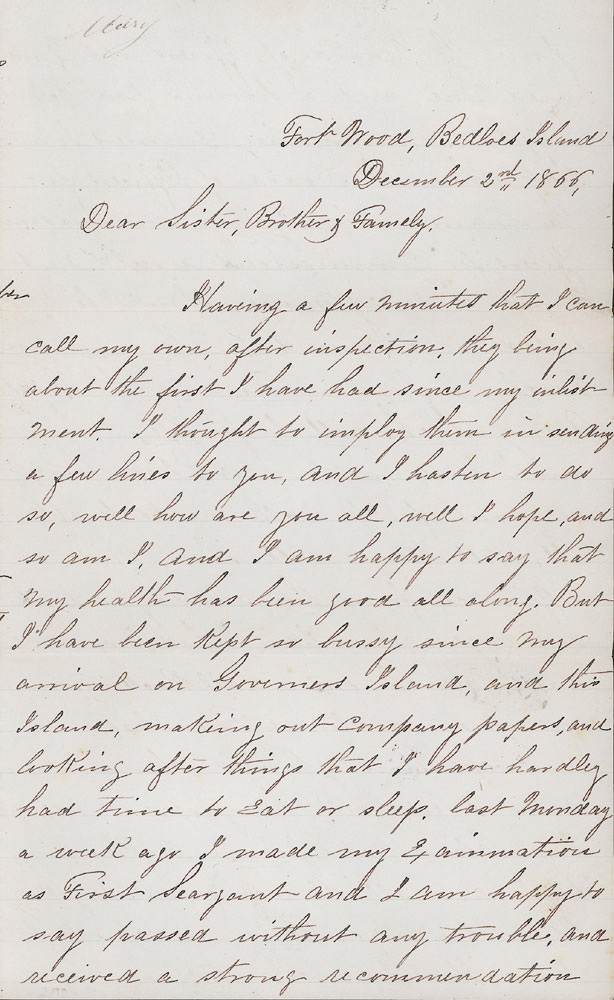 Fort Wood, Bedloes Island
December 2nd 1866,
Dear Sister, Brother & Famely.
Having a few minutes that I can
call my own, after inspection, they being
about the first I have had since my inlist-
ment. I thought to imploy them in sending
a few lines to you, and I hasten to do
so, well how are you all, well I hope, and
so am I, and I am happy to say that
my health has been good all along. But
I have been kept so bussy since my
arrival on Governers Island, and this
Island, making out company papers, and
looking after things that I have hardley
had time to Eat or sleep. last Monday
a week ago I made my Exainmation
as First Seargant and I am happy to
say passed without any trouble, and
received a strong recommendation